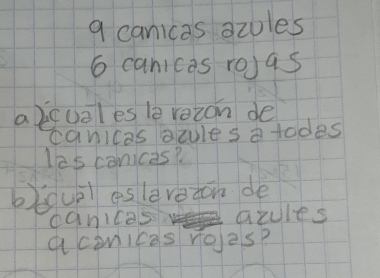 9 canicas azules
6 canicas rojas
a) ¿cuál es la razón de
canicas azules a todas
las canicas?
b) ¿cuál es la razón de
canicas azules
a canicas rojas?